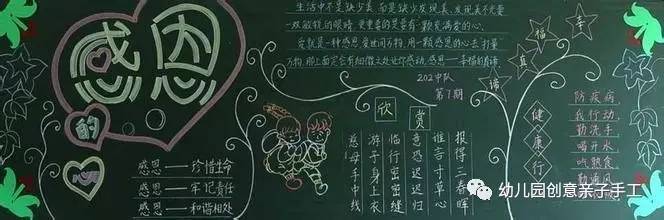 感恩
的
感恩——珍惜生命
感恩——牢记责任
感恩——和谐相处
生活中不是缺少美 而是缺少发现美,发现美不光要
一双敏锐的眼睛 更重要的是要有一颗充满爱的心。
爱就是一种感恩,爱世间万物,用一颗感恩的心去打量
万物,那上面定会有细微之处让你感动,感恩——幸福的真谛
202中队
第1期
欣赏
慈母手中线
游子身上衣
临行密密缝
意恐迟迟归
谁言寸草心
报得三春晖
幸福真谛
健康行
防疾病
我行动
勤洗手
喝开水
吃熟食
勤通风
幼儿园创意亲子手工